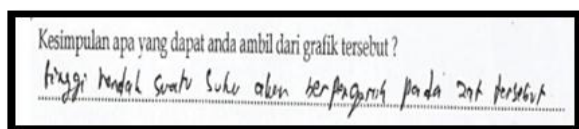 Kesimpulan apa yang dapat anda ambil dari grafik tersebut ?
tinggi rendah suatu suhu akan berpengaruh pada zat tersebut